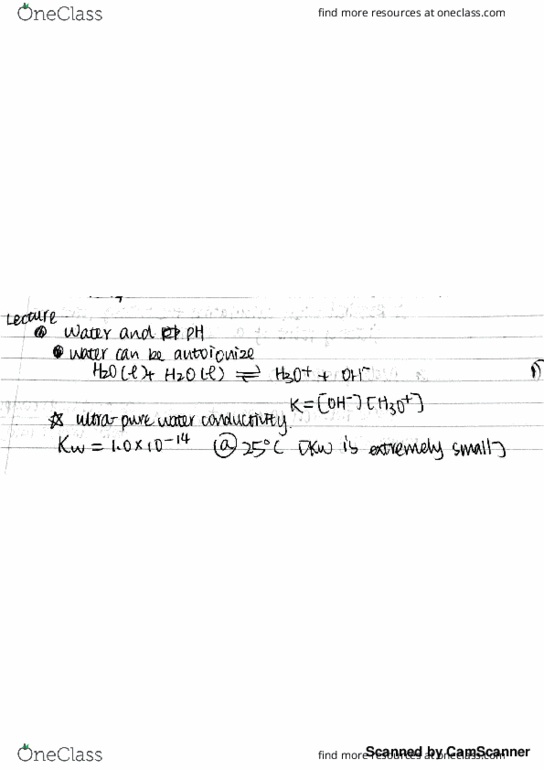 OneClass
find more resources at oneclass.com
Lecture
Water and PH
water can be autoionize
H2O(l) + H2O(l) ⇌ H3O+ + OH-
K = [OH-][H3O+]
☆ ultra-pure water conductivity.
Kw = 1.0 × 10^-14 @ 25°C [Kw is extremely small]
OneClass
find more resources at oneclass.com
Scanned by CamScanner